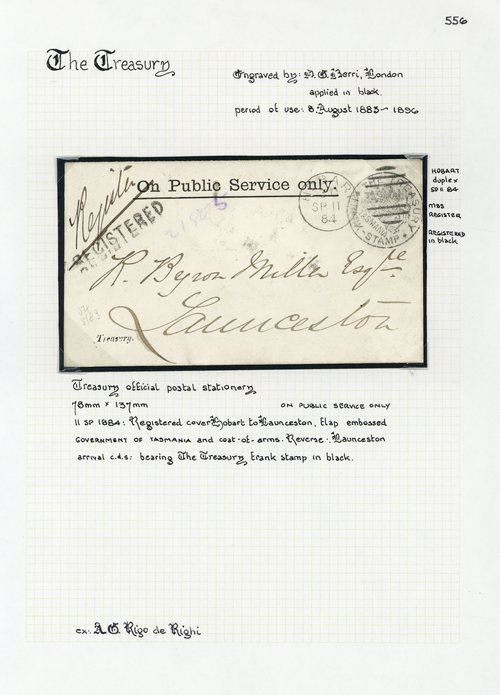 556
The Treasury
Engraved by: D. G. Berri, London
applied in black.
period of use: 8. August 1883 - 1896
Register
On Public Service only.
REGISTERED
HOBART
SP 11
84
THE TREASURY
TASMANIA
FRANK-STAMP
HOBART
duplex
SP 11 84
mss
REGISTER
REGISTERED
in black
R. Byron Miller Esqre
Launceston
Treasury.
Treasury official postal stationery
78mm x 137mm
ON PUBLIC SERVICE ONLY
11 SP 1884: Registered cover Hobart to Launceston, Flap embossed
GOVERNMENT OF TASMANIA and coat-of-arms. Reverse: Launceston
arrival c.d.s: bearing The Treasury frank stamp in black.
ex: A.G. Rigo de Righi